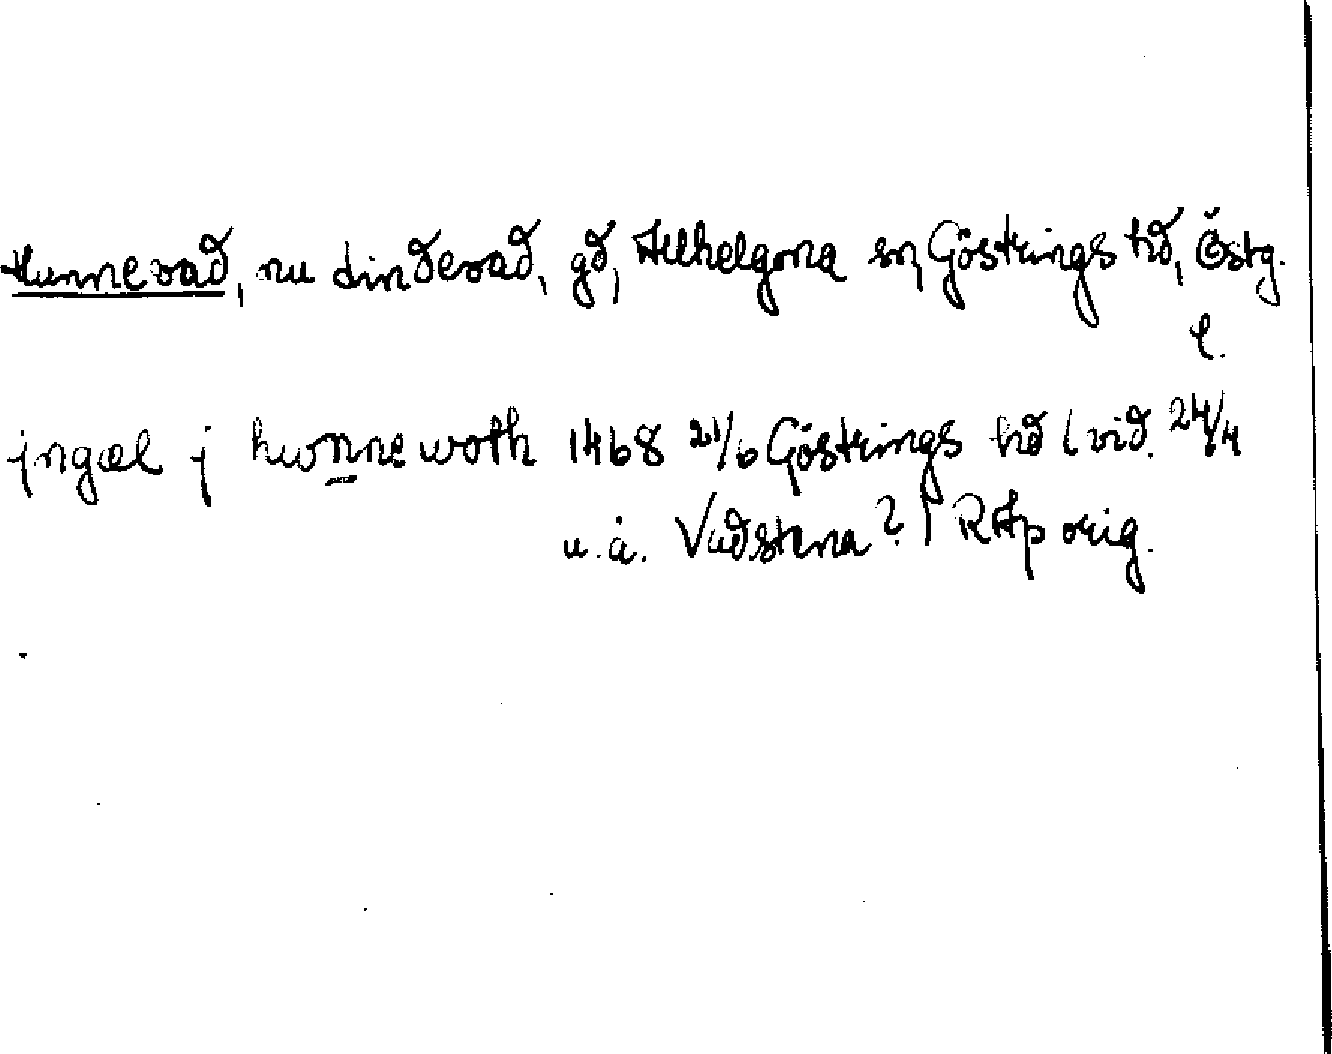 Hunnevad, nu Lindevad, gd, Allhelgona sn, Göstrings hd, Östg.
l.
jngæl j hwnne woth 1468 21/6 Göstrings hd (vid. 24/4
u.å. Vadstena?) RAp orig.